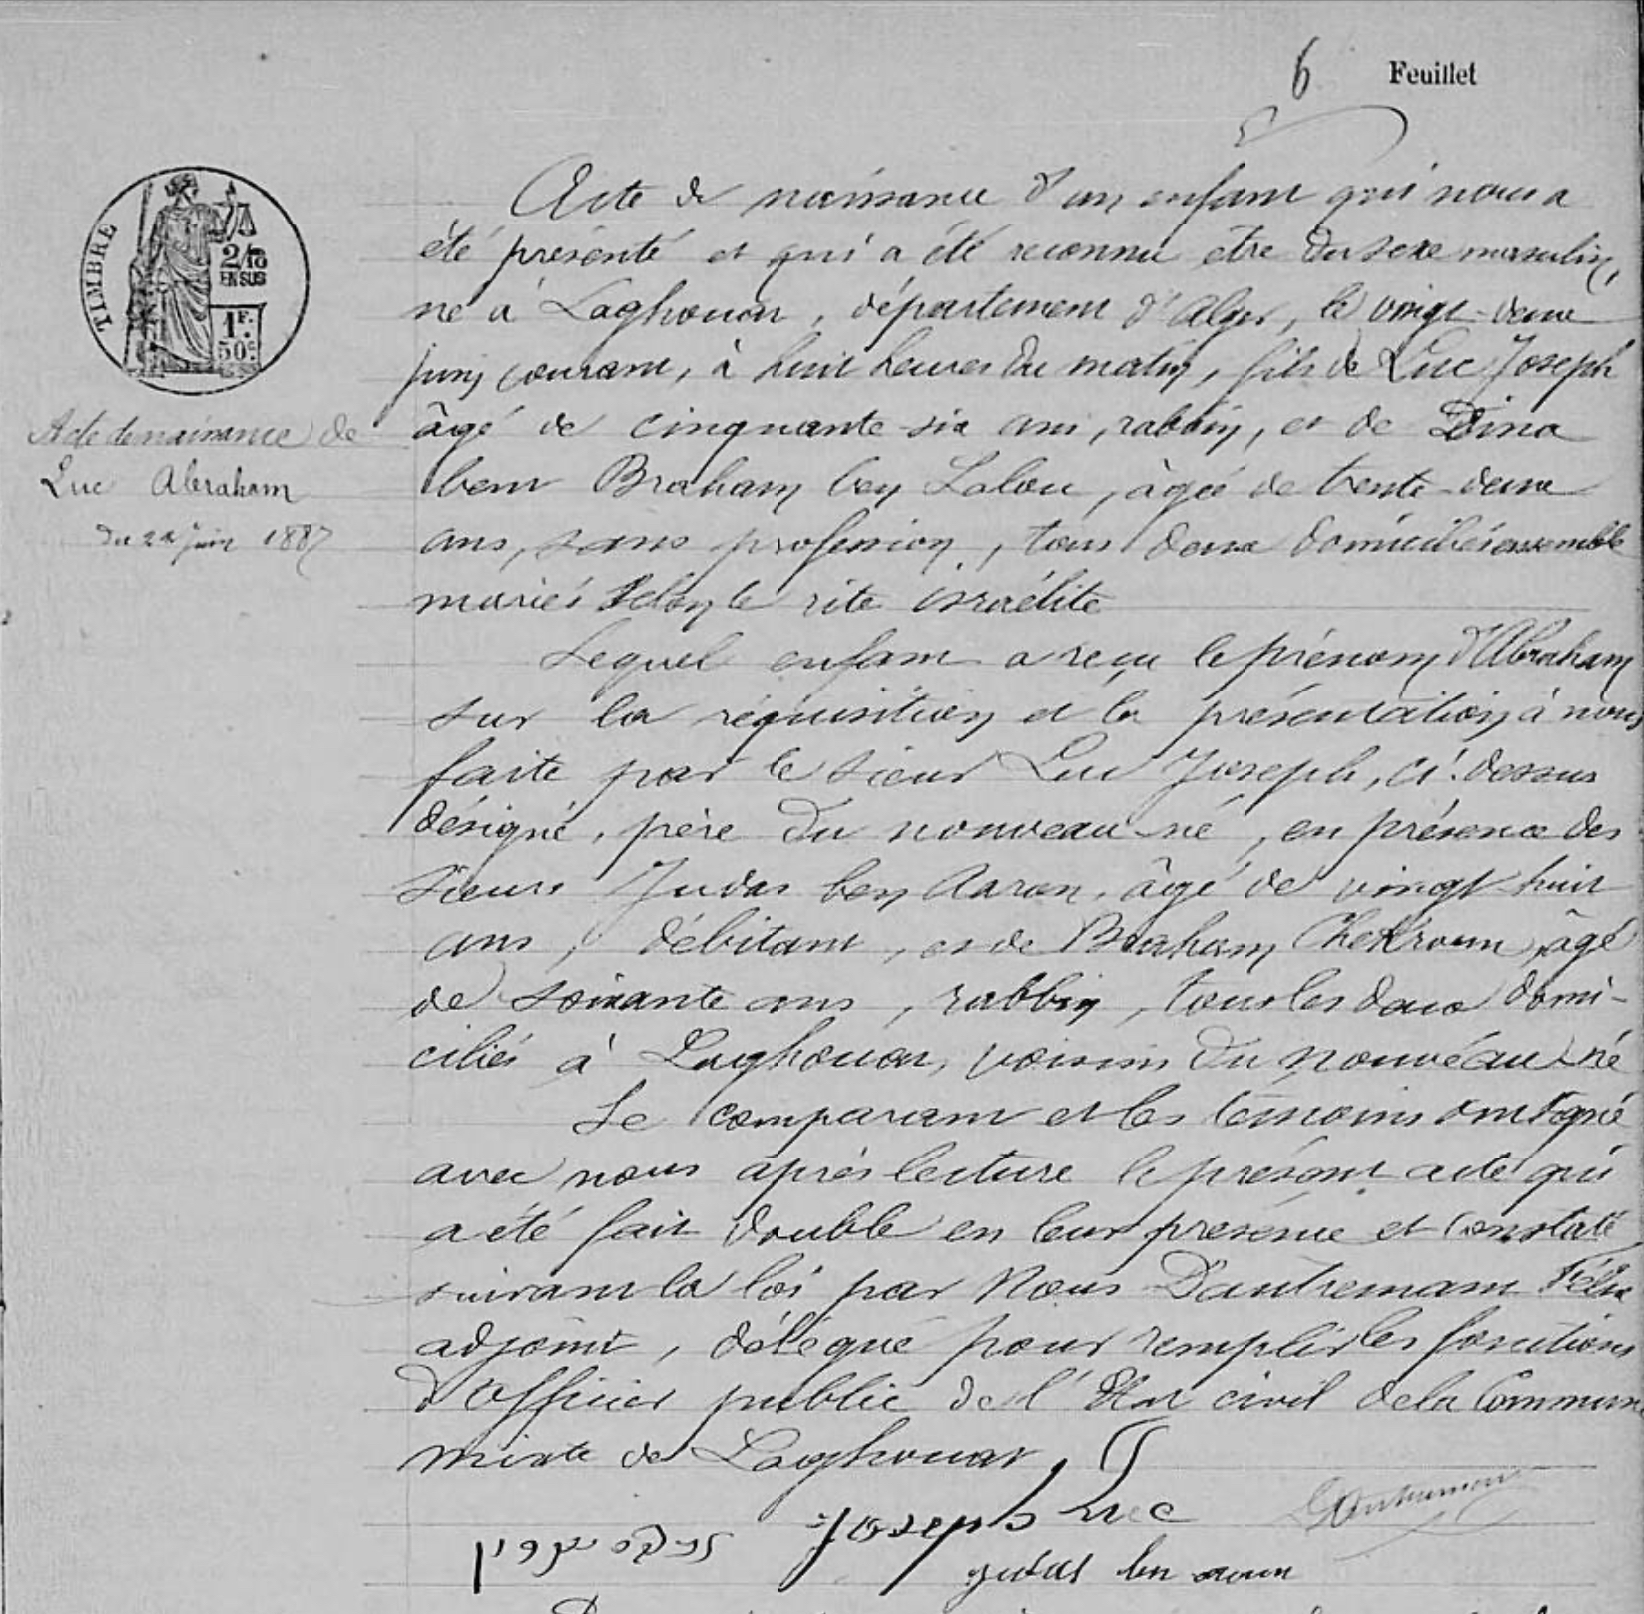 6 Feuillet
TIMBRE
2/10
EN SUS
1F.
50c
Acte de naissance de
Luc Abraham
du 22 juin 1887
Acte de naissance d'un enfant qui nous a
été présenté et qui a été reconnu être du sexe masculin,
né à Laghouat, département d'Alger, le vingt-deux
juin courant, à huit heures du matin, fils de Luc Joseph
âgé de cinquante-six ans, rabbin, et de Dina
bent Braham ben Lalou, âgée de trente-deux
ans, sans profession, tous deux domiciliés ensemble
mariés selon le rite israélite
Lequel enfant a reçu le prénom d'Abraham
sur la réquisition et la présentation à nous
faite par le sieur Luc Joseph, ci-dessus
désigné, père du nouveau-né, en présence des
sieurs Judas ben Aaron, âgé de vingt-huit
ans, débitant, et de Braham Chekroun, âgé
de soixante ans, rabbin, tous les deux domi-
ciliés à Laghouat, voisins du nouveau-né
Le comparant et les témoins ont signé
avec nous après lecture le présent acte qui
a été fait double en leur présence et constaté
suivant la loi par Nous Dautremant Félix
adjoint, délégué pour remplir les fonctions
d'officier public de l'Etat civil de la Commune
mixte de Laghouat.
Joseph Luc
judas ben aron